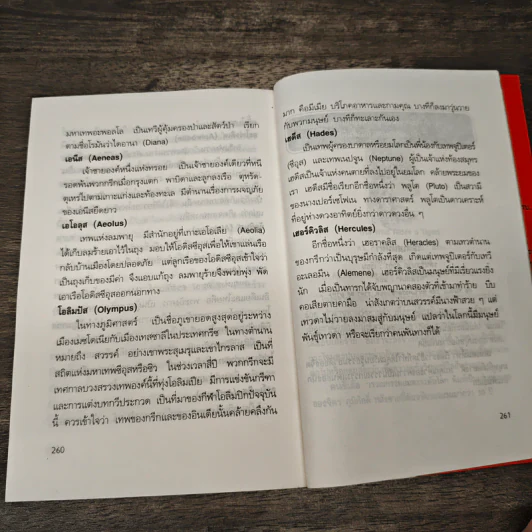 มหาเทพอะพอลโล เป็นเทวีผู้คุ้มครองป่าและสัตว์ป่า เรียก
ตามชื่อโรมันว่าไดอานา (Diana)
เอนีส (Aeneas)
เจ้าชายองค์หนึ่งแห่งทรอย เป็นเจ้าชายองค์เดียวที่หนี
รอดพ้นพวกกรีกเมื่อกรุงแตก พาบิดาและลูกลงเรือ ตุหรัด-
ตุเหร่ไปตามเกาะแก่งและท้องทะเล มีตำนานเรื่องการผจญภัย
ของเอนีสยืดยาว
เอโอลุส (Aeolus)
เทพแห่งลมพายุ มีสำนักอยู่ที่เกาะเอโอเลีย (Aeolia)
ได้เก็บลมร้ายเอาไว้ในถุง มอบให้โอดีสซุสเพื่อให้เขาแล่นเรือ
กลับบ้านเมืองโดยปลอดภัย แต่ลูกเรือของโอดีสซุสเข้าใจว่า
เป็นถุงเก็บของมีค่า จึงแอบแก้ถุง ลมพายุร้ายจึงพวยพุ่ง พัด
เอาเรือโอดีสซุสออกนอกทาง
โอลิมปัส (Olympus)
ในทางภูมิศาสตร์ เป็นชื่อภูเขายอดสูงสุดอยู่ระหว่าง
เมืองเมซโดเนียกับเมืองเทสซาลีในประเทศกรีซ ในทางตำนาน
หมายถึง สวรรค์ อย่างเขาพระสุเมรุและเขาไกรลาส เป็นที่
สถิตแห่งมหาเทพซีอุสหรือซิว ในช่วงเวลาสี่ปี พวกกรีกจะมี
เทศกาลบวงสรวงเทพองค์นี้ที่ทุ่งโอลิมเปีย มีการแข่งขันกรีฑา
และการแต่งบทกวีประกวด เป็นที่มาของกีฬาโอลิมปิกปัจจุบัน
นี้ ควรเข้าใจว่า เทพของกรีกและของอินเดียนั้นคล้ายคลึงกัน
260
มาก คือมีเมีย บริโภคอาหารและกามคุณ บางทีก็ลงมาวุ่นวาย
กับพวกมนุษย์ บางทีก็ทะเลาะกันเอง
เฮดีส (Hades)
เป็นเทพผู้ครองบาดาลหรือยมโลกเป็นพี่น้องกับเทพจูปีเตอร์
(ซีอุส) และเทพเนปจูน (Neptune) ผู้เป็นเจ้าแห่งท้องสมุทร
เฮดีสเป็นเจ้าแห่งคนตายที่ลงไปอยู่ในยมโลก คล้ายพระยมของ
เรา เฮดีสมีชื่อเรียกอีกชื่อหนึ่งว่า พลูโต (Pluto) เป็นสวามี
ของนางเปอร์เซโฟเน ทางดาราศาสตร์ พลูโตเป็นดาวเคราะห์
ที่อยู่ห่างดวงอาทิตย์ยิ่งกว่าดาวดวงอื่น ๆ
เฮอร์คิวลิส (Hercules)
อีกชื่อหนึ่งว่า เฮอราคลิส (Heracles) ตามเทวตำนาน
ของกรีกว่าเป็นบุรุษมีกำลังที่สุด เกิดแต่เทพจูปีเตอร์กับเทวี
อะเลอมีน (Alemene) เฮอร์คิวลิสเป็นมนุษย์ที่มีเรี่ยวแรงยิ่ง
นัก เมื่อเป็นทารกได้จับพญานาคสองตัวที่เข้ามาทำร้าย บีบ
คอเสียตายคามือ น่าสังเกตว่าบนสวรรค์มีนางฟ้าสวย ๆ แต่
เทวดาไม่วายลงมาสมสู่กับมนุษย์ แปลว่าในโลกนี้มีมนุษย์
พันธุ์เทวดา หรือจะเรียกว่าคนพันทางก็ได้
261